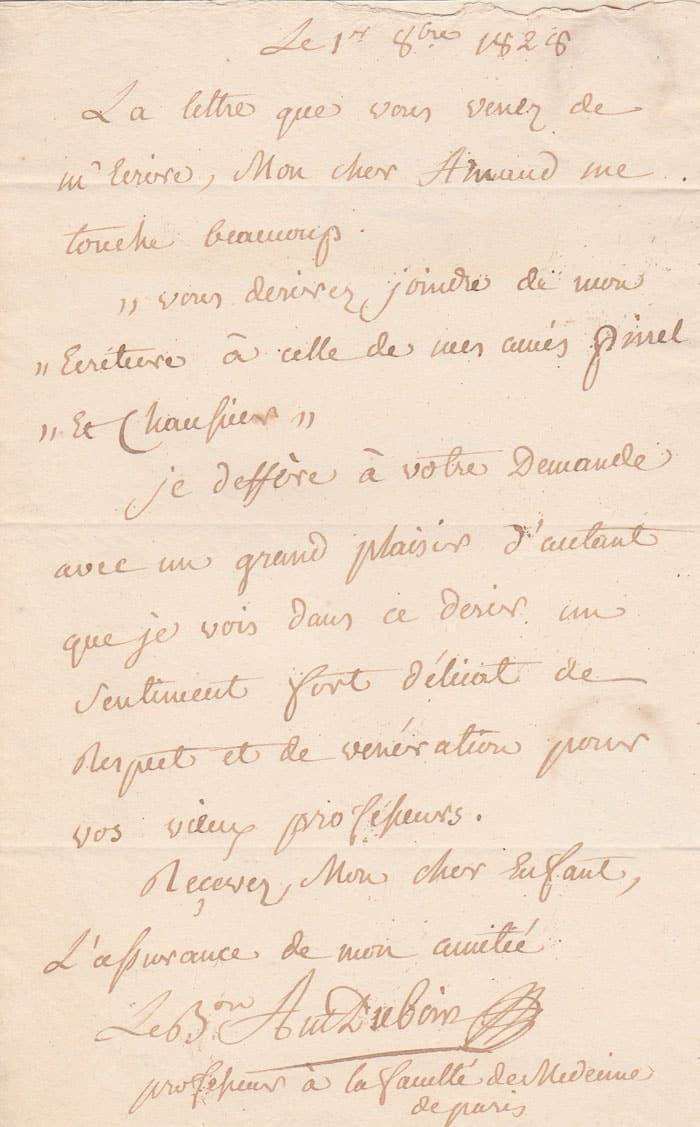 Le 1er 8bre 1828
La lettre que vous venez de
m'Ecrire, Mon cher Amand me
touche beaucoup.
„ vous desirez, joindre de mon
„ Ecriture à celle de mes amis pinel
„ Et Chaussier „
je deffère à votre Demande
avec un grand plaisir d'autant
que je vois dans ce desir un
sentiment fort délicat de
Respect et de vénération pour
vos vieux professeurs.
Reçevez, Mon cher Enfant,
L'assurance de mon amitié
Le Bon Ant Dubois
professeur à la faculté de Medecine
de paris